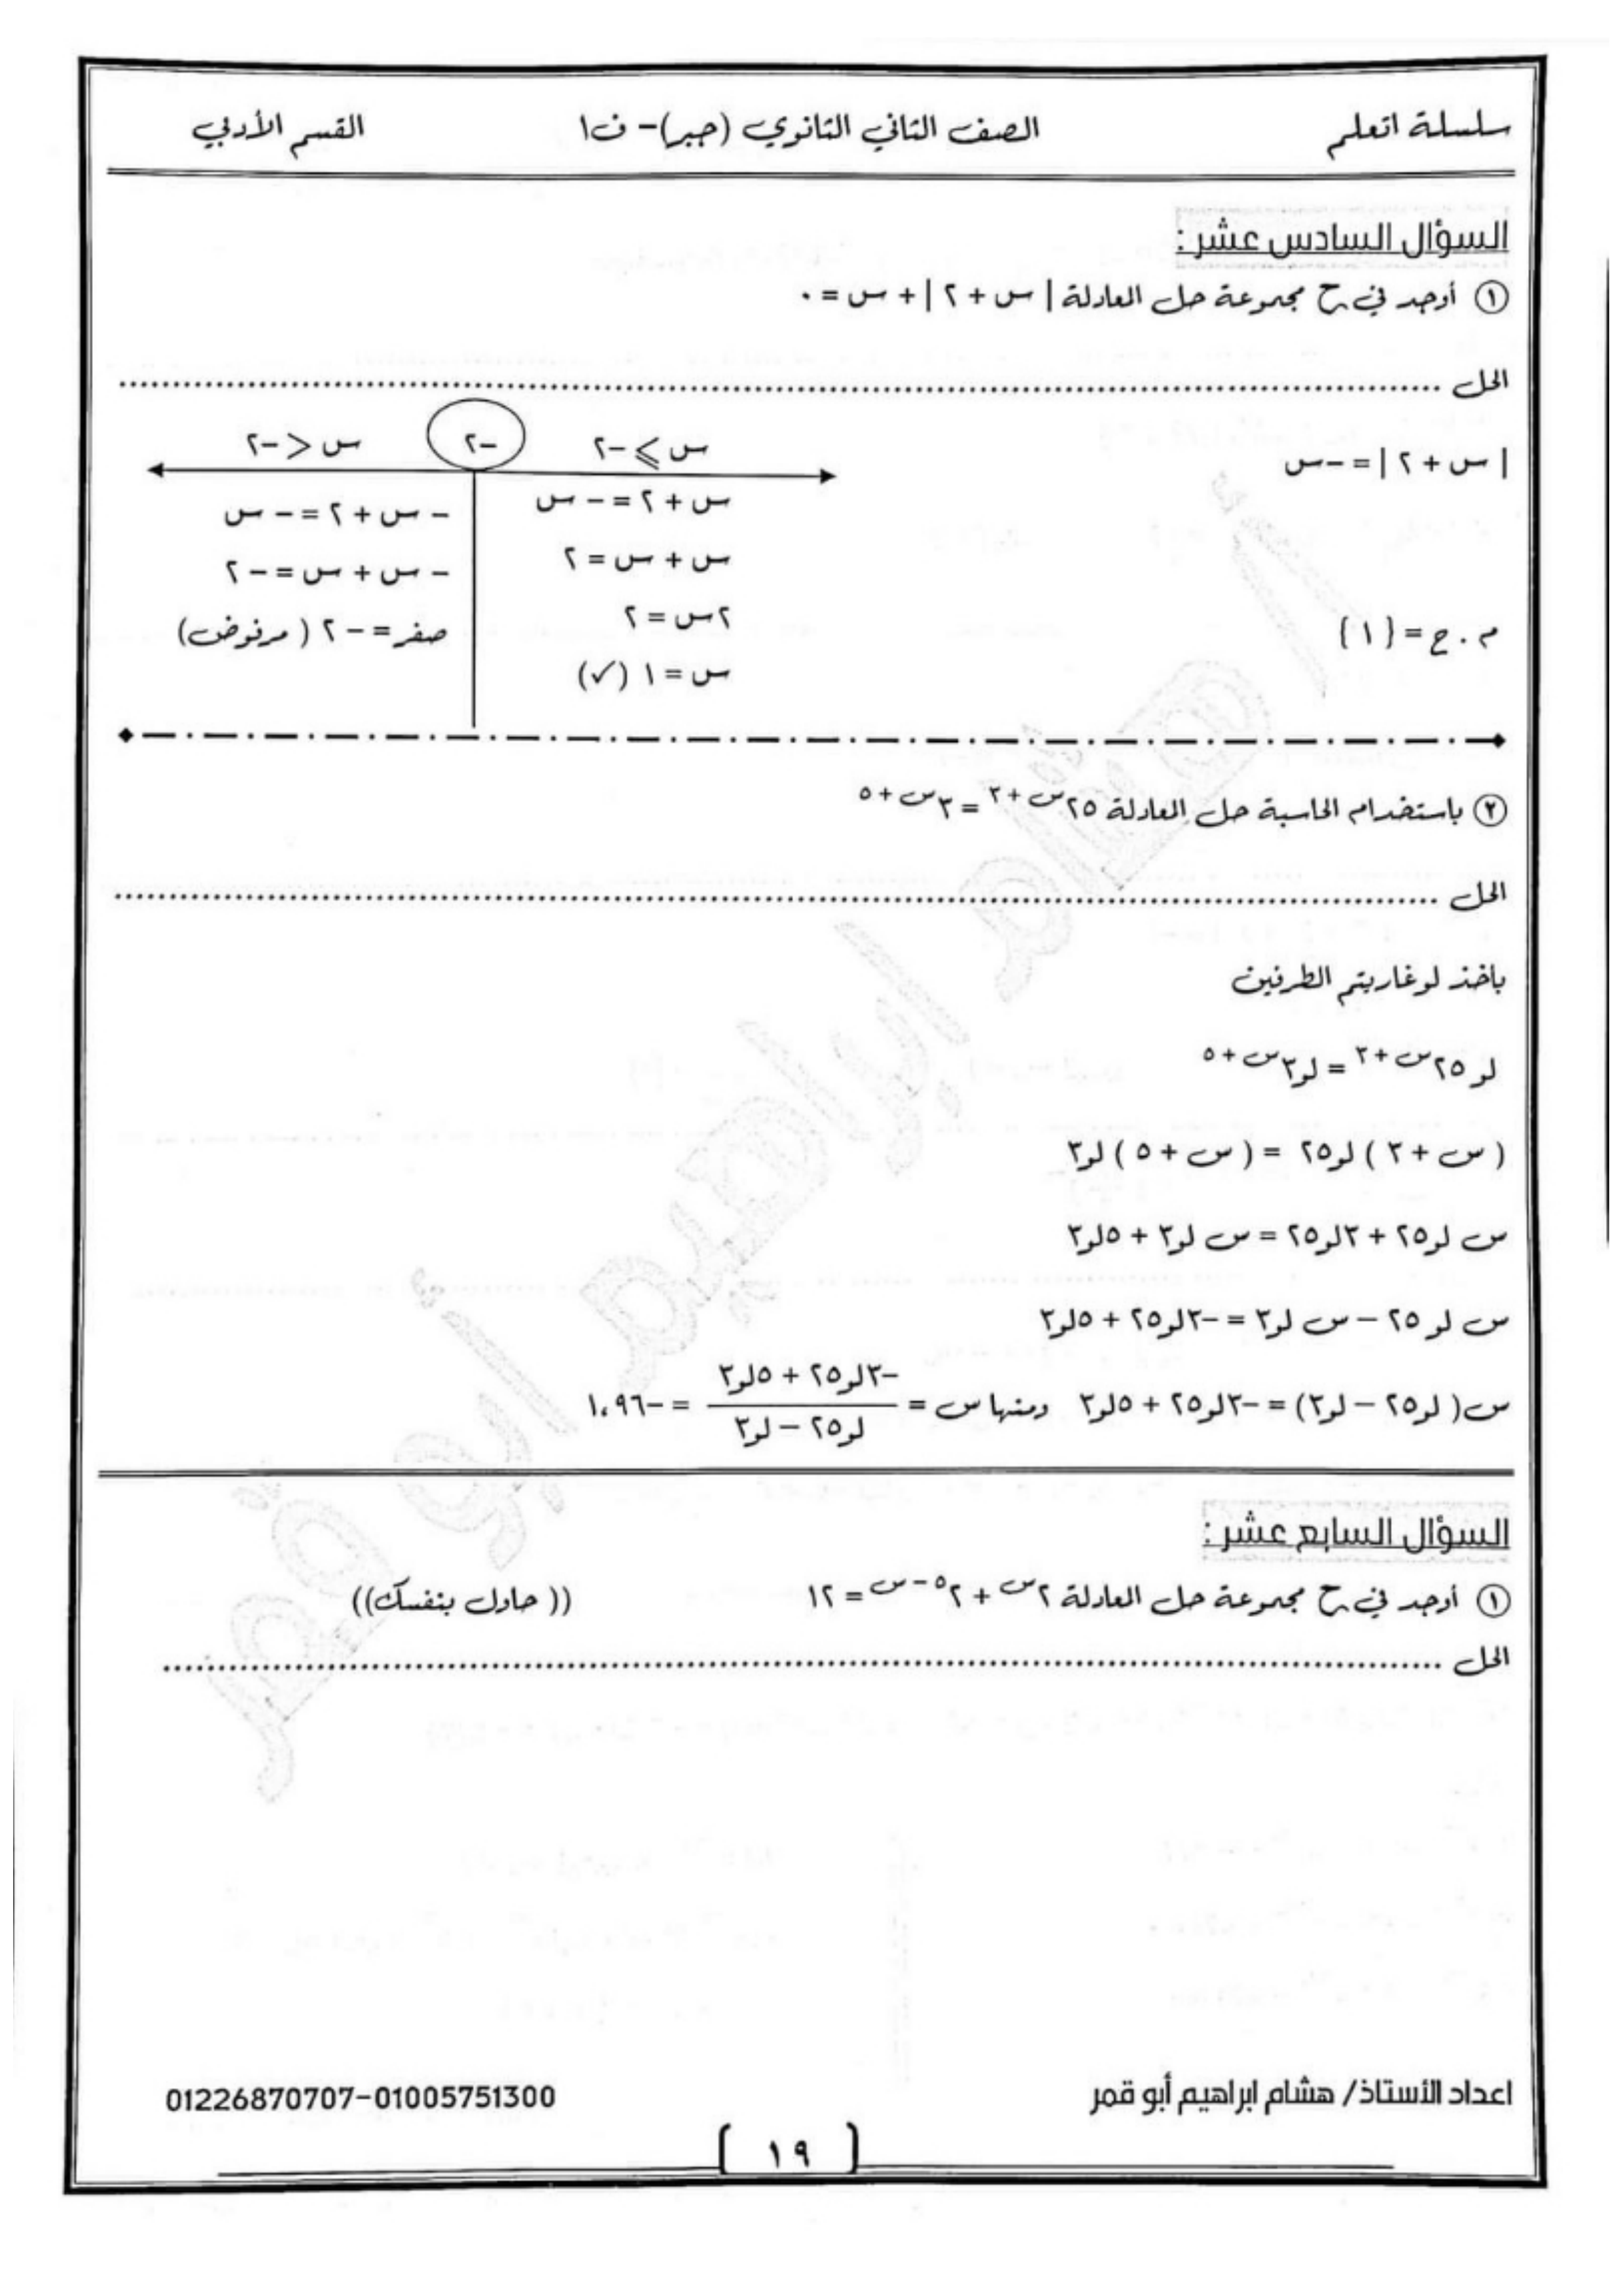 سلسلة اتعلم الصف الثاني الثانوي (جبر)– ف١ القسم الأدبي
السؤال السادس عشر :
① أوجد في ح مجموعة حل المعادلة | س + ٢ | + س = ٠
الحل ........................................
| س + ٢ | = –س
س ⩾ –٢ –٢ س < –٢
س + ٢ = – س – س + ٢ = – س
س + س = ٢ – س + س = – ٢
٢س = ٢ صفر = – ٢ ( مرفوض)
م . ح = { ١ }
س = ١ (✓)
② باستخدام الحاسبة حل المعادلة ٢٥^(س + ٣) = ٣^(س + ٥)
الحل ........................................
بأخذ لوغاريتم الطرفين
لو ٢٥^(س + ٣) = لو ٣^(س + ٥)
( س + ٣ ) لو٢٥ = ( س + ٥ ) لو٣
س لو٢٥ + ٣لو٢٥ = س لو٣ + ٥لو٣
س لو ٢٥ – س لو٣ = –٣لو٢٥ + ٥لو٣
س( لو٢٥ – لو٣) = –٣لو٢٥ + ٥لو٣ ومنها س = (–٣لو٢٥ + ٥لو٣) / (لو٢٥ – لو٣) = –١،٩٦
السؤال السابع عشر :
① أوجد في ح مجموعة حل المعادلة ٢^س + ٢^(٥ – س) = ١٢ (( حاول بنفسك))
الحل ........................................
اعداد الأستاذ/ هشام ابراهيم أبو قمر 01226870707–01005751300
[ ١٩ ]
أ هشام إبراهيم أبو قمر